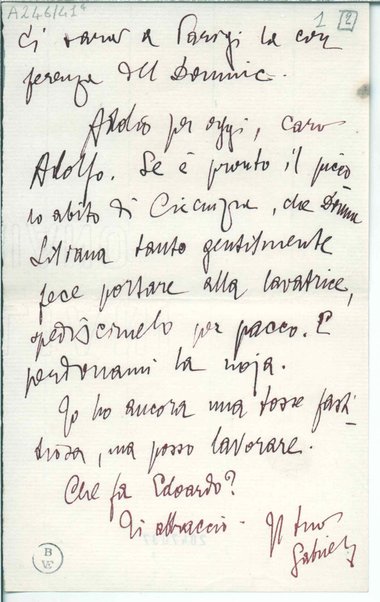 A246/41a
1 2
Ci sarà a Parigi la con
ferenza del Dominic.
Addio per oggi, caro
Adolfo. Se è pronto il picco
lo abito di Cicciuzza, che Donna
Liliana tanto gentilmente
fece portare alla lavatrice,
spediscimelo per pacco. E
perdonami la noja.
Io ho ancora una tosse fasti_
diosa, ma posso lavorare.
Che fa Edoardo?
Ti abbraccio. Il tuo
Gabriele
B
VE